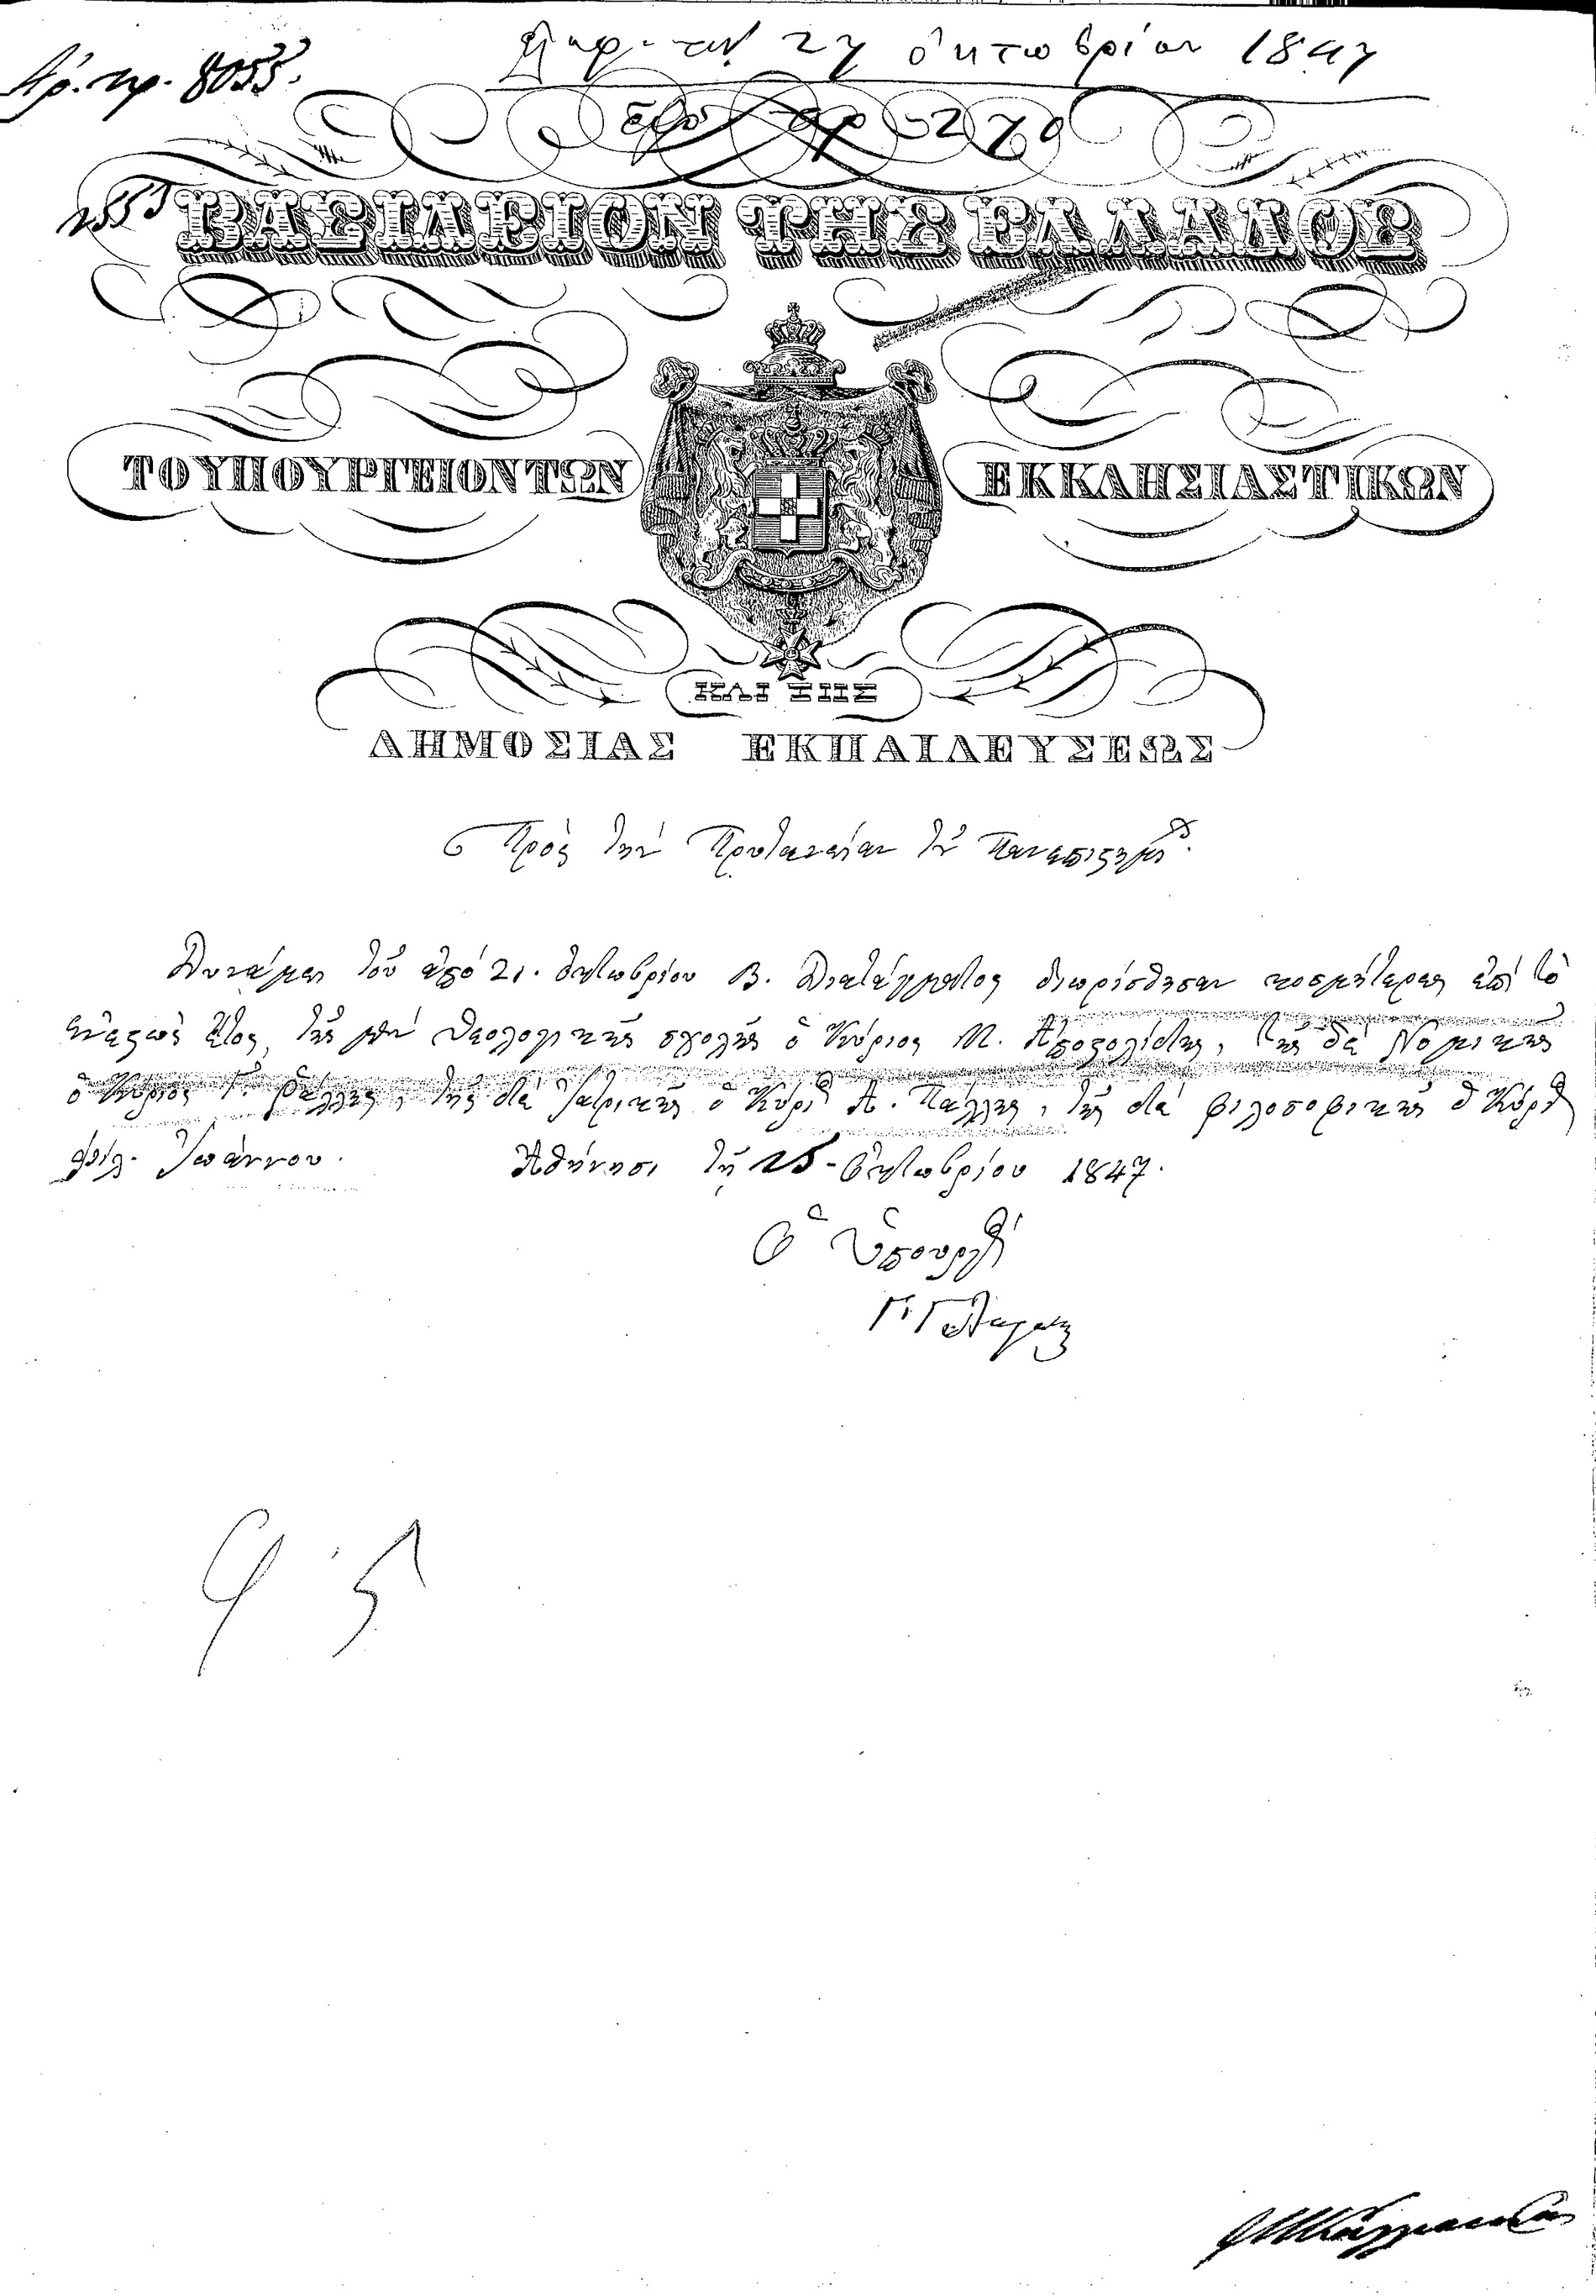 Ἀρ. πρ. 8053.
τὴν 27 ὀκτωβρίου 1847
ἀρ 270
ΒΑΣΙΛΕΙΟΝ ΤΗΣ ΕΛΛΑΔΟΣ
ΤΟ ΥΠΟΥΡΓΕΙΟΝ ΤΩΝ ΕΚΚΛΗΣΙΑΣΤΙΚΩΝ
ΚΑΙ ΤΗΣ
ΔΗΜΟΣΙΑΣ ΕΚΠΑΙΔΕΥΣΕΩΣ
Πρὸς τὴν Πρυτανείαν τοῦ Πανεπιστημίου.
Δυνάμει τοῦ ἀπὸ 21. Ὀκτωβρίου Β. Διατάγματος διωρίσθησαν κοσμήτορες ἐπὶ τὸ
ἐνεστὼς ἔτος, τῆς μὲν Θεολογικῆς σχολῆς ὁ Κύριος Μ. Ἀποστολίδης, τῆς δὲ Νομικῆς
ὁ Κύριος Γ. Ῥάλλης, τῆς δὲ Ἰατρικῆς ὁ Κύριος Α. Πάλλης, τῆς δὲ φιλοσοφικῆς ὁ Κύριος
Φίλ. Ἰωάννου. Ἀθήνησι τῇ 25 Ὀκτωβρίου 1847.
Ὁ Ὑπουργὸς
Γ. Γλαράκης